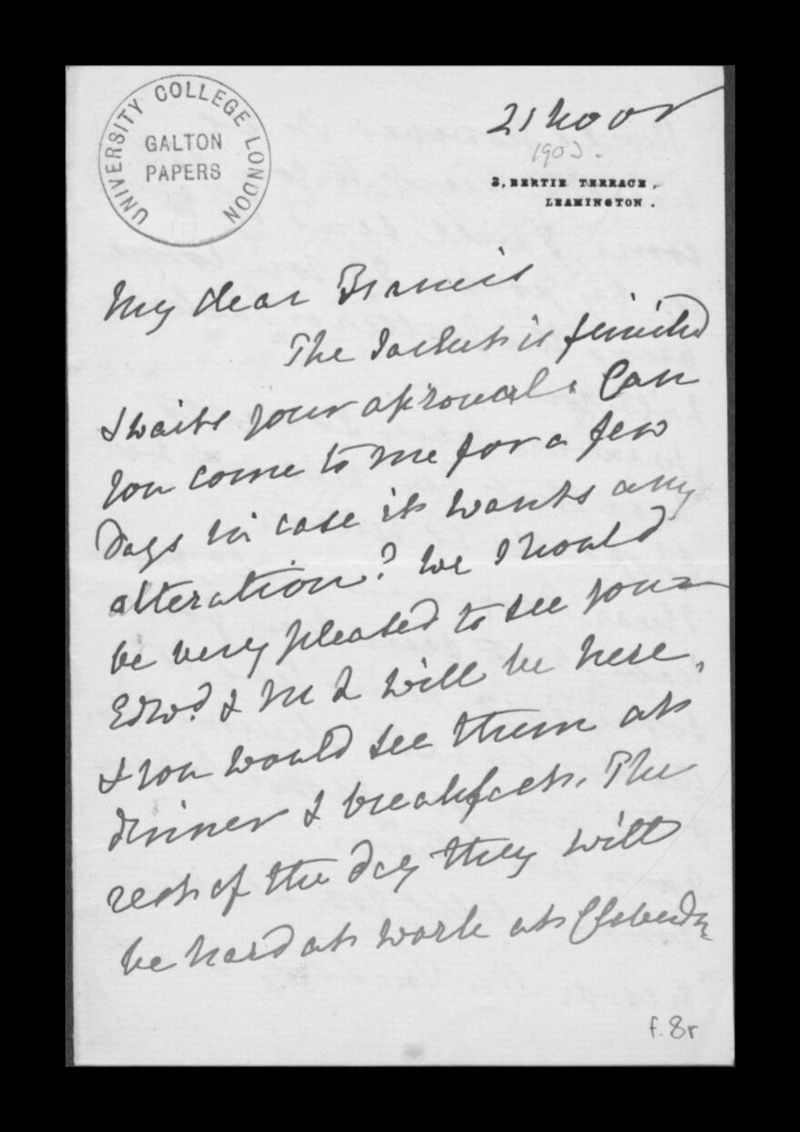 UNIVERSITY COLLEGE LONDON
GALTON
PAPERS
21 Nov
1905.
3, BERTIE TERRACE,
LEAMINGTON.
My dear Francis
The is finished
& waits your aproval. Can
you come to me for a few
Days in case it wants any
alteration? We should
be very pleased to see you
Edwd & M L will be here,
& you would see them at
dinner & breakfast. The
rest of the day they will
be hard at work at
f. 8r